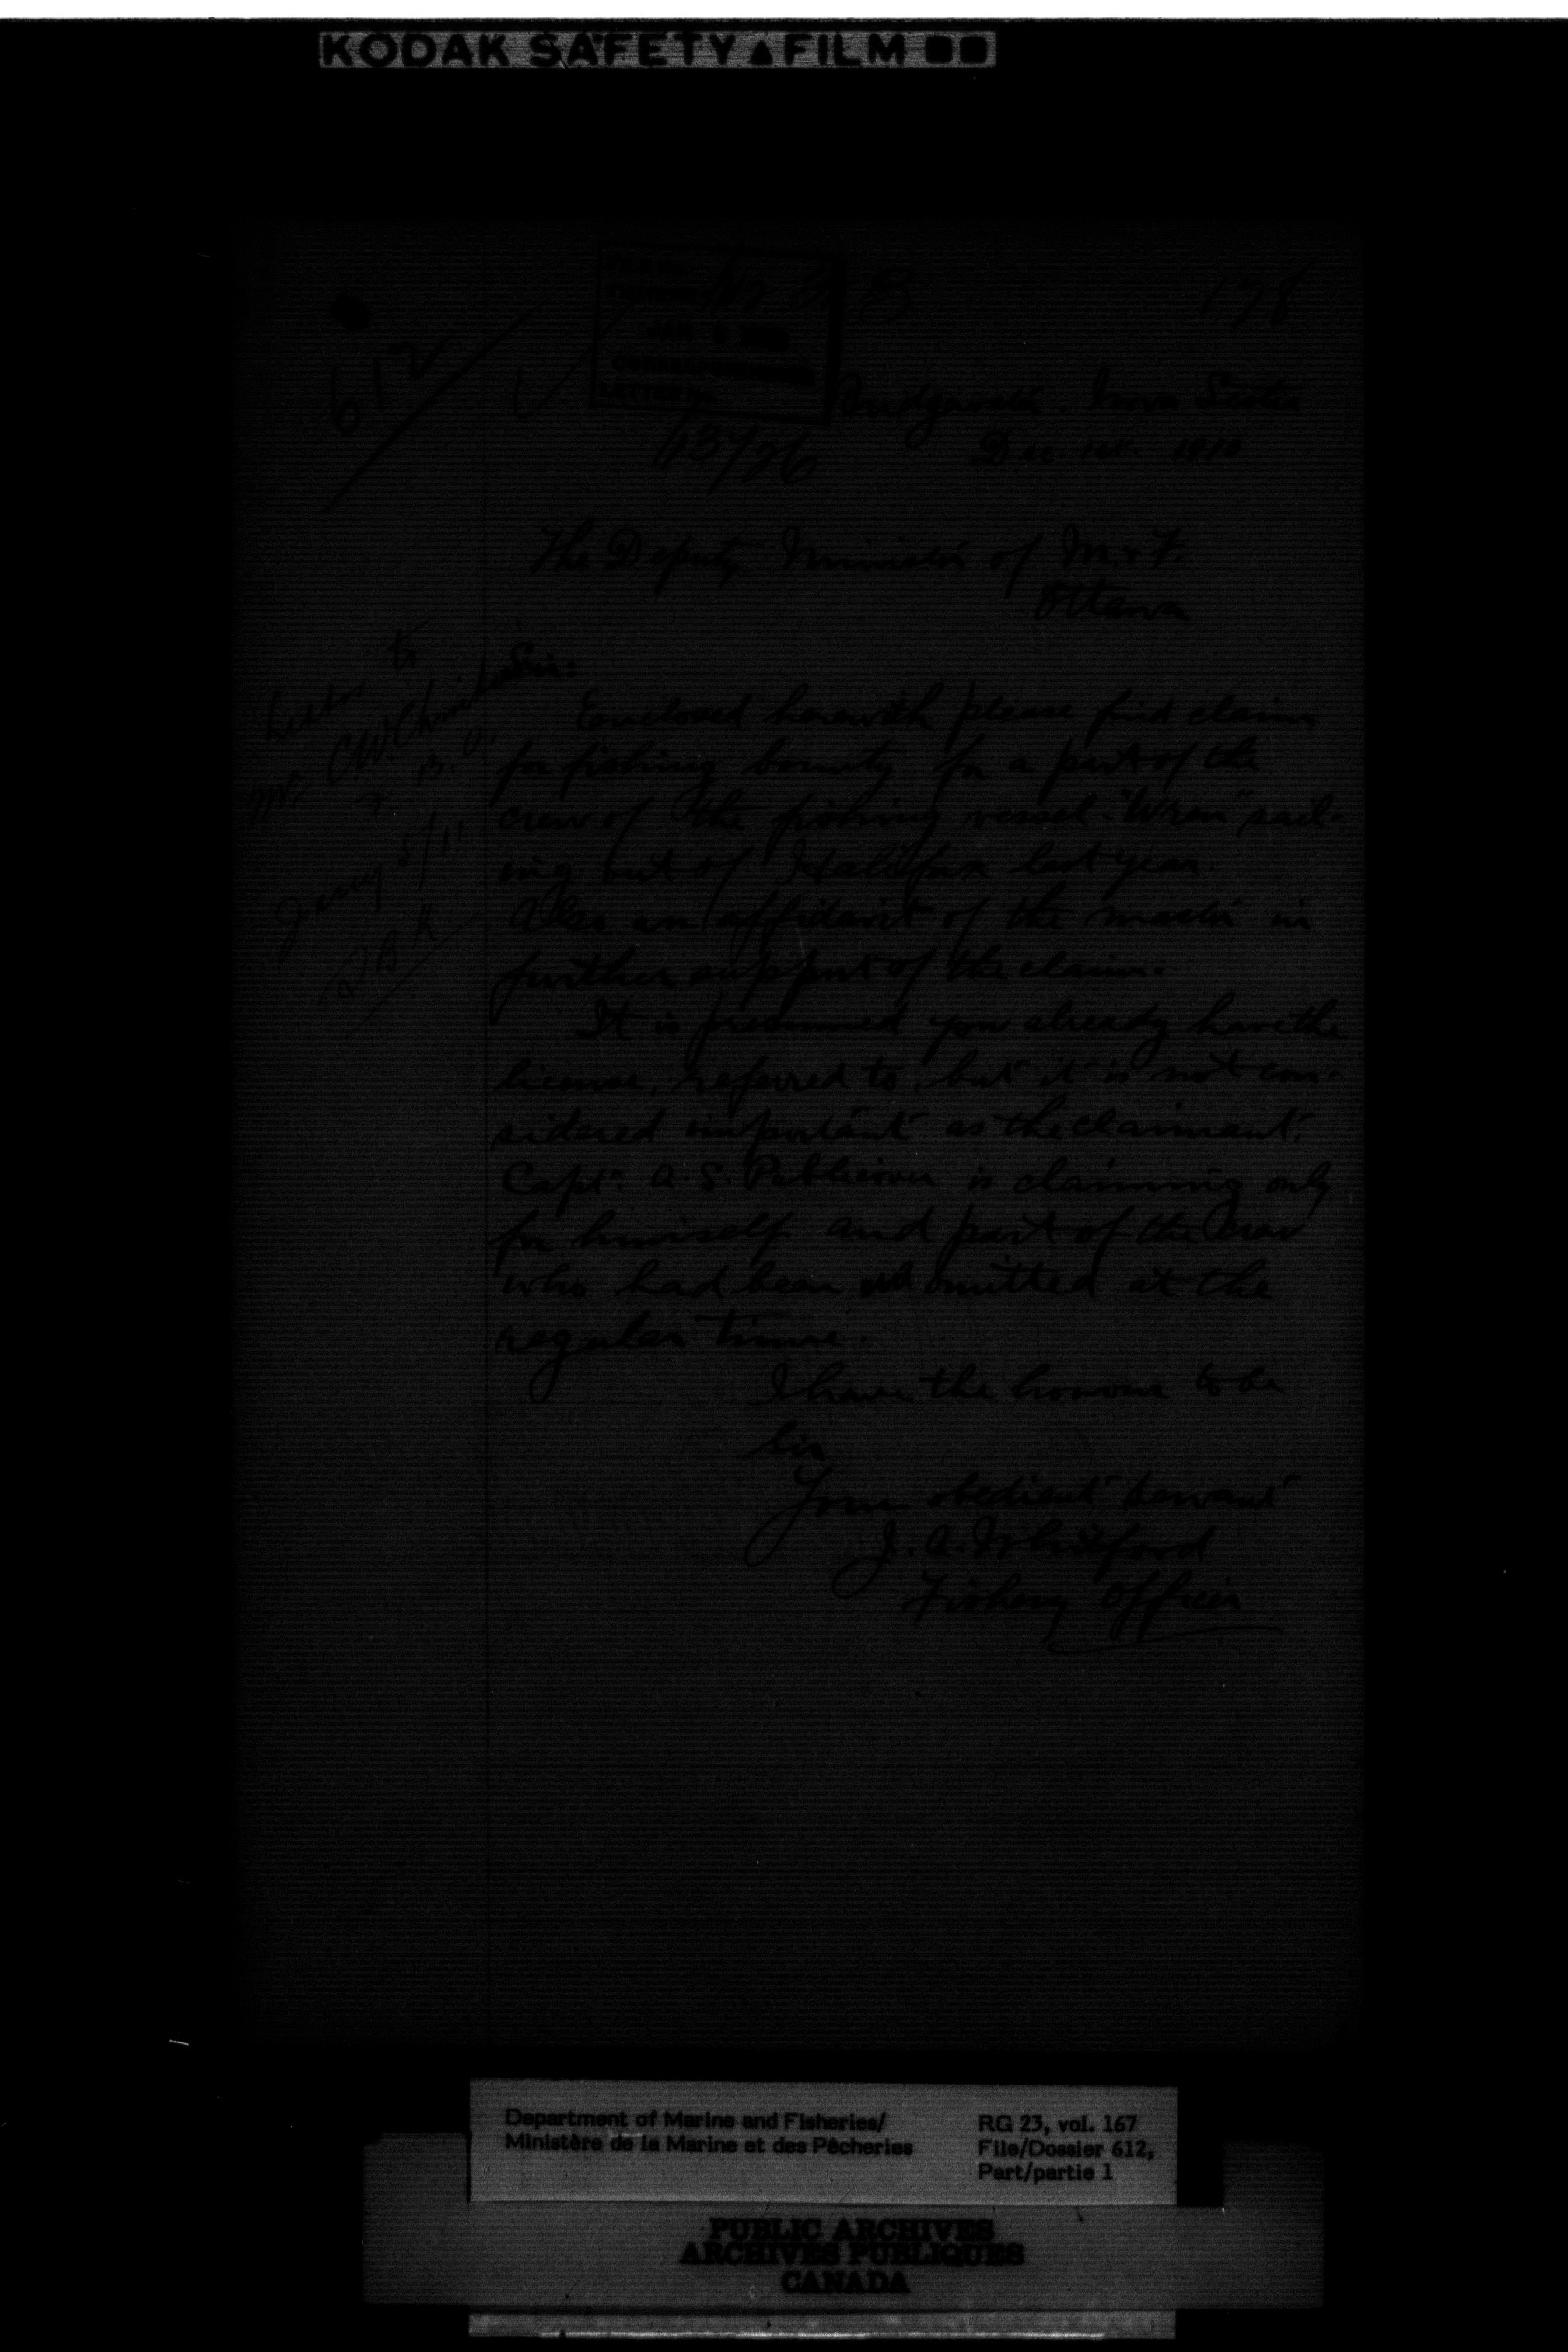 KODAK SAFETY ▲ FILM
178
612
JAN
CORRESPONDENCE
LETTER No.
13726
Bridgewater, Nova Scotia
Dec. 1st. 1910
The Deputy Minister of M. & F.
Ottawa
Letter to
Mr C.W.
F. B. O.
Jany 5/11
Sir:
Enclosed herewith please find claim
for fishing bounty for a part of the
crew of the fishing vessel "Wren" sail-
ing out of Halifax last year.
Also an affidavit of the master in
further support of the claim.
It is presumed you already have the
license, referred to, but it is not con-
sidered important as the claimant,
Capt: A. S. Publicover is claiming only
for himself and part of the crew
who had been omitted at the
regular time.
I have the honour to be
Sir
Your obedient servant
J. A. Whitford
Fishery Officer
Department of Marine and Fisheries/
Ministère de la Marine et des Pêcheries
RG 23, vol. 167
File/Dossier 612,
Part/partie 1
PUBLIC ARCHIVES
ARCHIVES PUBLIQUES
CANADA